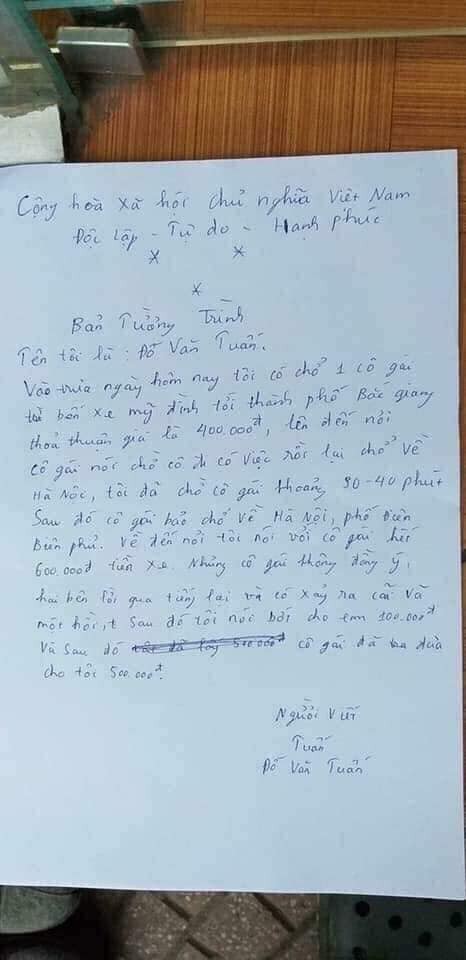 Cộng hoà xã hội chủ nghĩa Việt Nam
Độc lập - Tự do - Hạnh phúc
* *
*
Bản Tường Trình
Tên tôi là : Đỗ Văn Tuấn.
Vào trưa ngày hôm nay tôi có chở 1 cô gái
từ bến xe mỹ đình tới thành phố Bắc giang
thoả thuận giá là 400.000đ, lên đến nơi
cô gái nói chờ cô đi có việc rồi lại chở về
Hà Nôc, tôi đã chờ cô gái khoảng 30-40 phút
Sau đó cô gái bảo chở về Hà Nội, phố Điên
Biên phủ. Về đến nơi tôi nói với cô gái hết
600.000đ tiền xe. Nhưng cô gái không đồng ý,
hai bên lời qua tiếng lại và có xảy ra cãi vã
một hồi, Sau đó tôi nói bớt cho em 100.000đ
Và sau đó cô gái đã đưa
cho tôi 500.000đ.
Người Viết
Tuấn
Đỗ Văn Tuấn